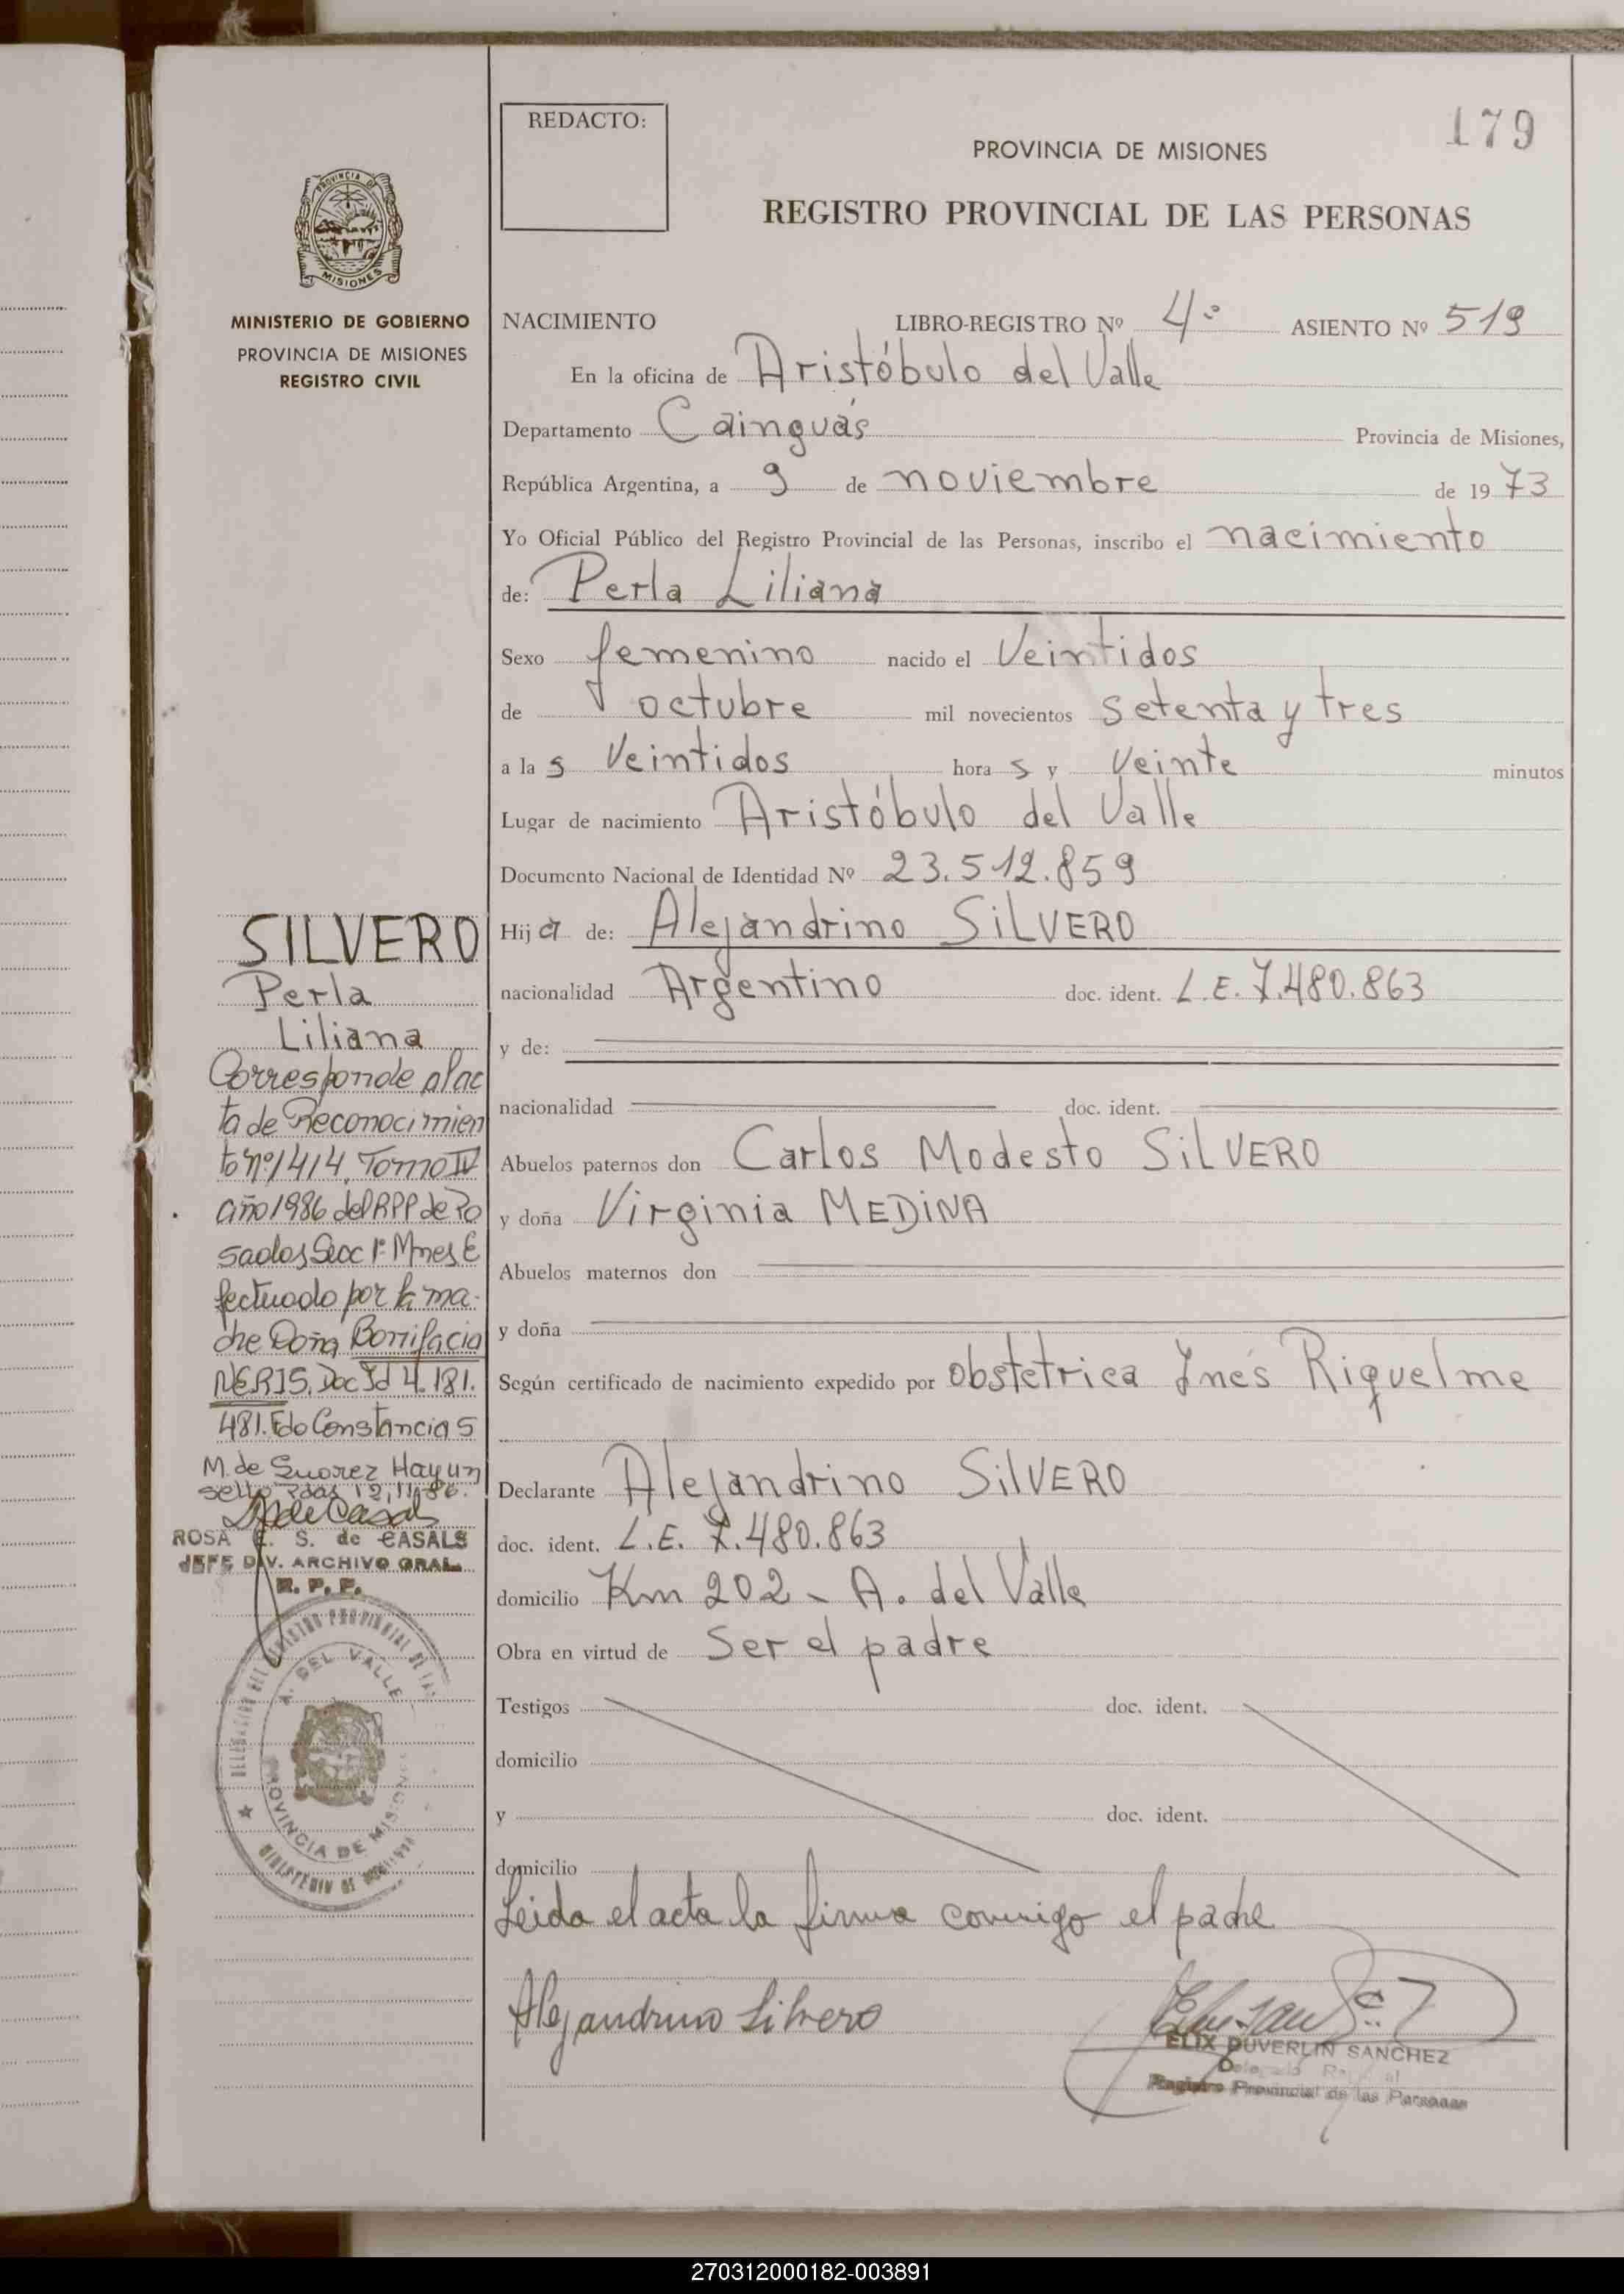 REDACTO:
179
PROVINCIA DE MISIONES
REGISTRO PROVINCIAL DE LAS PERSONAS
PROVINCIA DE
MISIONES
MINISTERIO DE GOBIERNO
PROVINCIA DE MISIONES
REGISTRO CIVIL
NACIMIENTO LIBRO-REGISTRO Nº 4º ASIENTO Nº 519
En la oficina de Aristóbulo del Valle
Departamento Cainguás Provincia de Misiones,
República Argentina, a 9 de noviembre de 1973
Yo Oficial Público del Registro Provincial de las Personas, inscribo el nacimiento
de: Perla Liliana
Sexo femenino nacido el Veintidos
de octubre mil novecientos setenta y tres
a la s Veintidos hora s y Veinte minutos
Lugar de nacimiento Aristóbulo del Valle
Documento Nacional de Identidad Nº 23.512.859
Hij a de: Alejandrino SILVERO
nacionalidad Argentino doc. ident. L.E. 7.480.863
y de:
nacionalidad doc. ident.
Abuelos paternos don Carlos Modesto SILVERO
y doña Virginia MEDINA
Abuelos maternos don
y doña
Según certificado de nacimiento expedido por obstetrica Inés Riquelme
Declarante Alejandrino SILVERO
doc. ident. L.E. 7.480.863
domicilio Km 202 - A. del Valle
Obra en virtud de Ser el padre
Testigos doc. ident.
domicilio
y doc. ident.
domicilio
Leida el acta la firma conmigo el padre
Alejandrino Silvero
ELIX DUVERLIN SANCHEZ
Registro Provincial de las Personas
SILVERO
Perla
Liliana
Corresponde al ac
ta de Reconocimien
to nº 1414, Tomo IV
año 1986 del RPP de Po
sadas Secc 1º Mnes E
fectuado por la ma-
dre Doña Bonifacia
NERIS. Doc Id 4.181.
481. Fdo Constancia S
M. de Suarez Hay un
sello Pdas 12,11,86.
ROSA E. S. de CASALS
JEFE DIV. ARCHIVO GRAL.
R. P. P.
DELEGACION DEL REGISTRO PROVINCIAL DE LAS
A. DEL VALLE
PROVINCIA DE MISIONES
MINISTERIO DE GOBIERNO
270312000182-003891